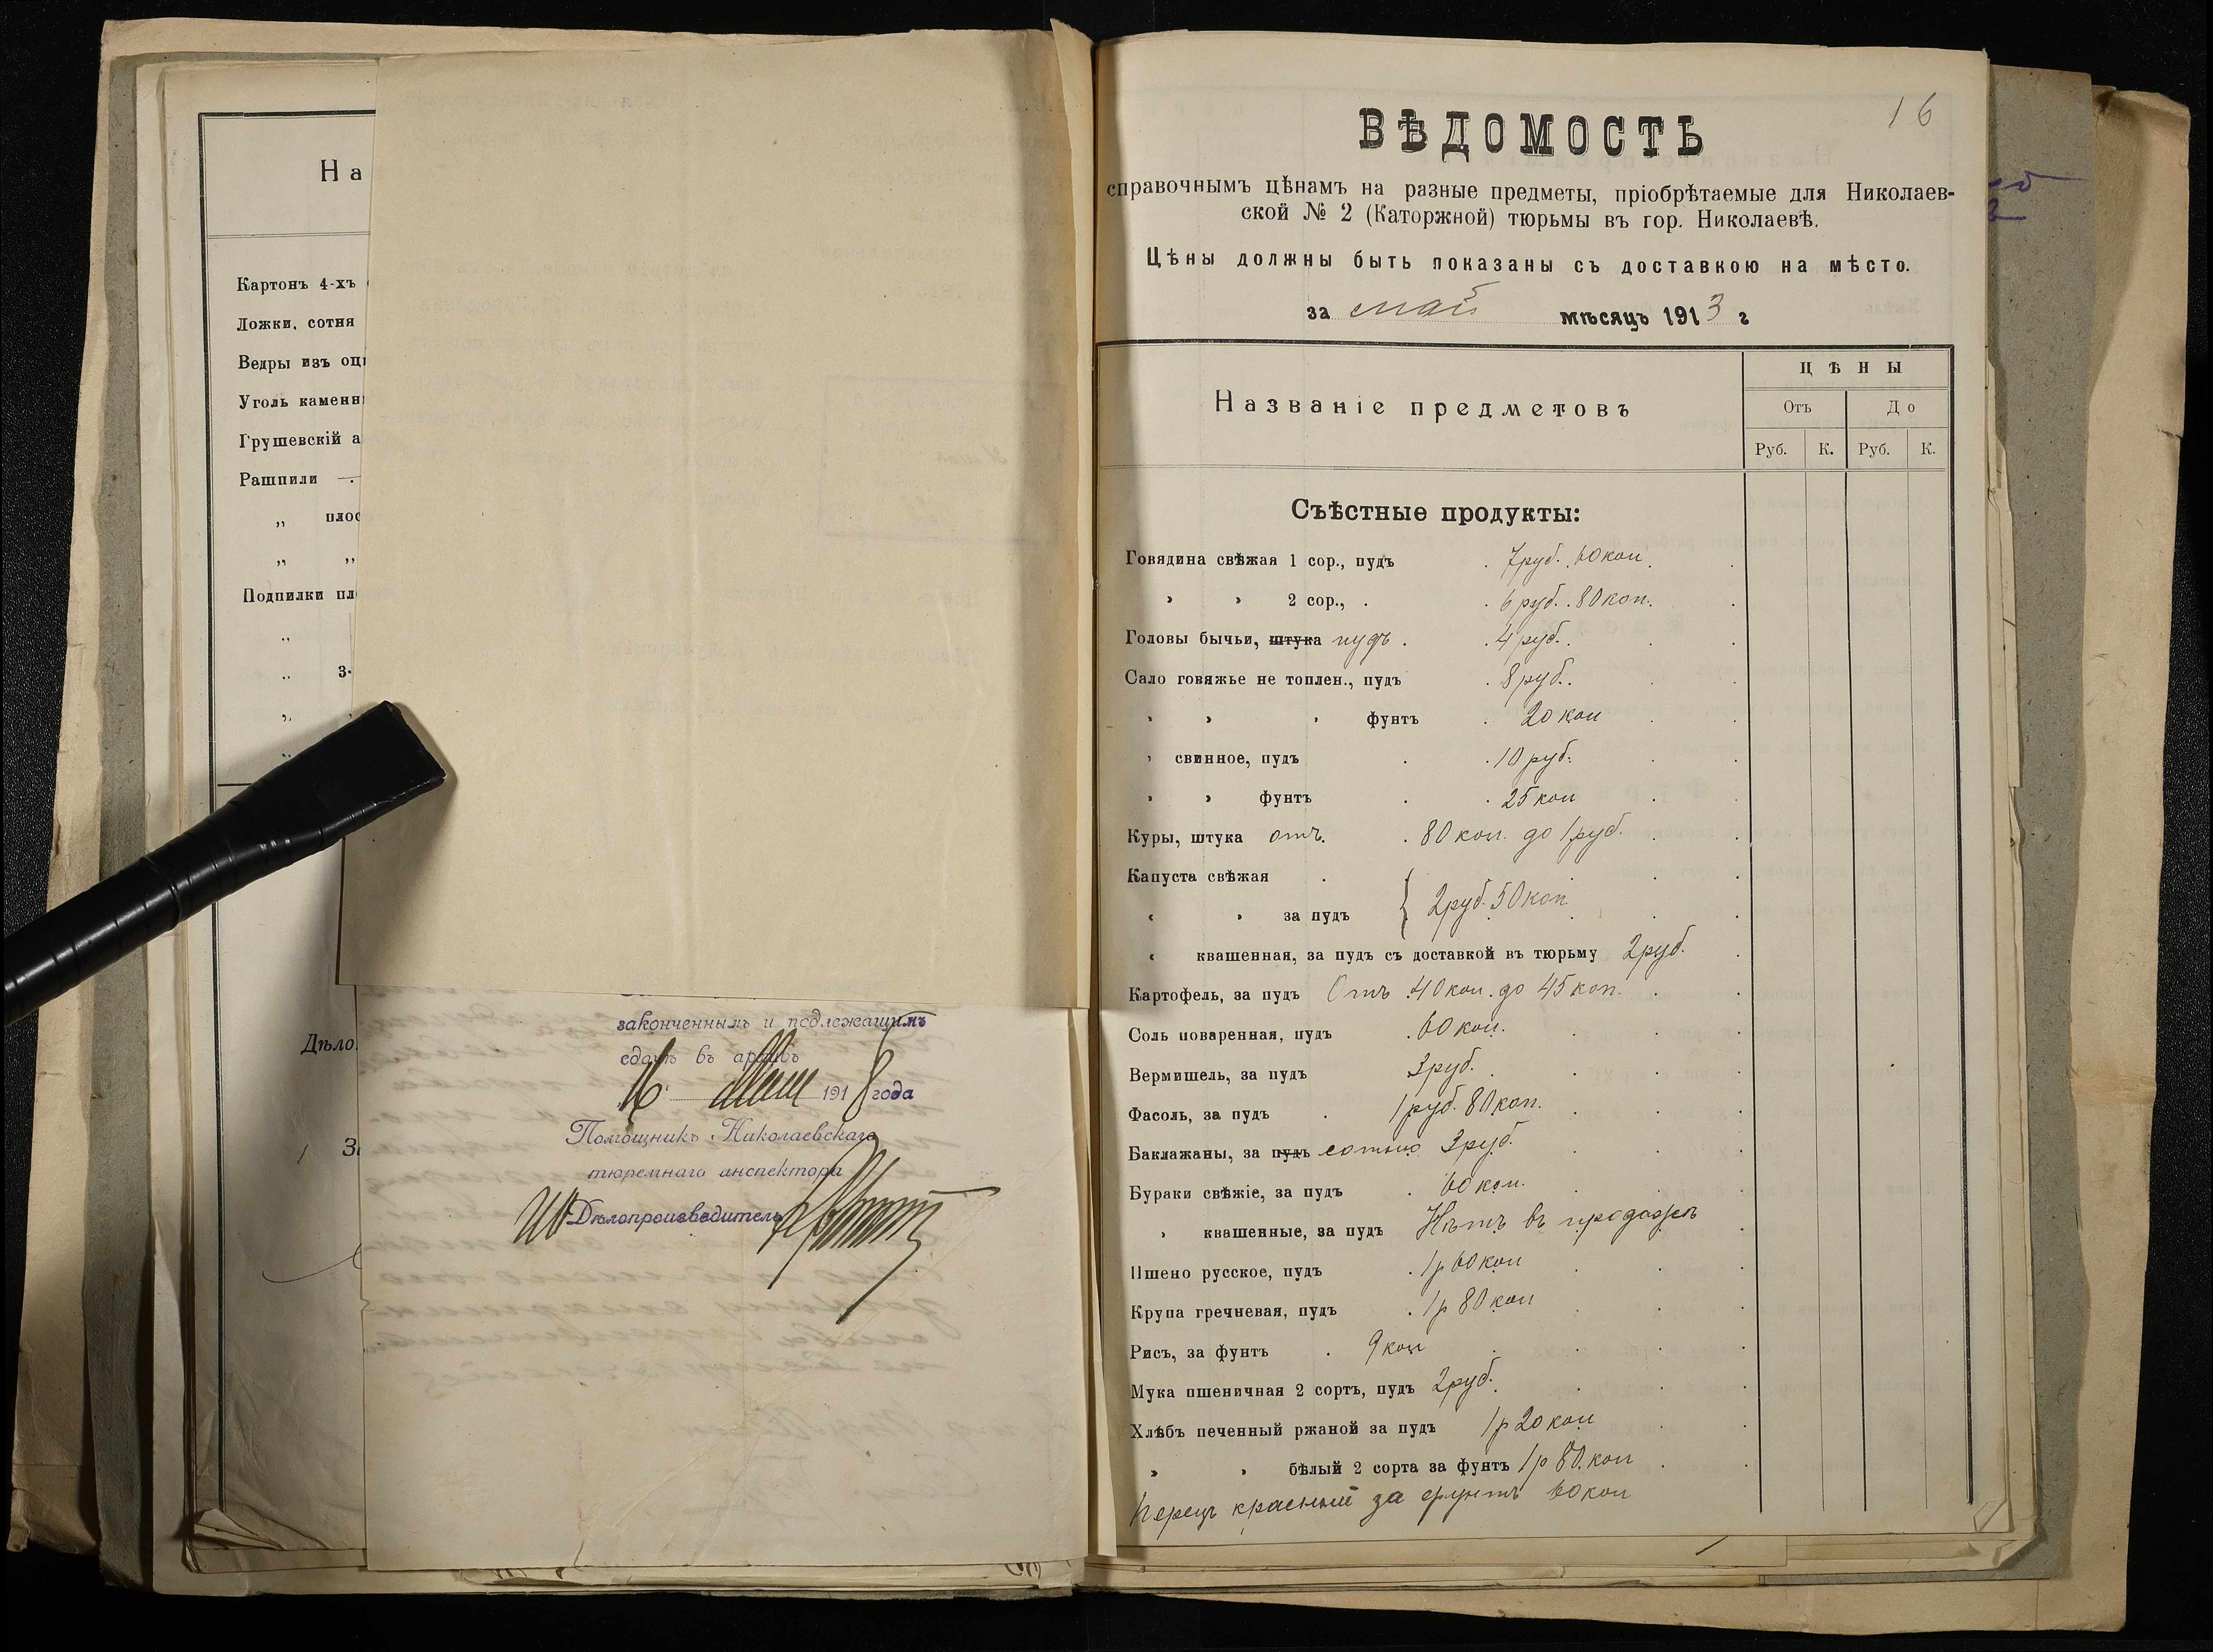 На
Картонъ 4-хъ
Ложки, сотня
Ведры изъ оц
Уголь каменн
Грушевскій а
Рашпили —.
„ плос
„ „
Подпилки пл
„
„ 3-
„
„
Дѣло
законченнымъ и подлежащимъ
сдачѣ въ архивъ
16 мая 1918 года
Помощникъ Николаевскаго
тюремнаго инспектора
ИО Дѣлопроизводитель
16
ВѢДОМОСТЬ
справочнымъ цѣнамъ на разные предметы, пріобрѣтаемые для Николаев-
ской № 2 (Каторжной) тюрьмы въ гор. Николаевѣ.
Цѣны должны быть показаны съ доставкою на мѣсто.
за май мѣсяцъ 1913 г
Названіе предметовъ
ЦѢНЫ
Отъ До
Руб. К. Руб. К.
Съѣстные продукты:
Говядина свѣжая 1 сор., пудъ . 7руб. 60коп.
„ „ 2 сор., . . 6руб. 80коп.
Головы бычьи, штука пудъ . . 4руб.
Сало говяжье не топлен., пудъ . 8руб.
„ „ „ фунтъ . 20коп
„ свинное, пудъ . . 10руб.
„ „ фунтъ . . 25коп
Куры, штука отъ . 80коп. до 1руб.
Капуста свѣжая .
„ „ за пудъ { 2руб. 50коп
„ квашенная, за пудъ съ доставкой въ тюрьму 2руб.
Картофель, за пудъ Отъ 40коп. до 45коп.
Соль поваренная, пудъ . 60коп.
Вермишель, за пудъ 3руб.
Фасоль, за пудъ . 1руб. 80коп.
Баклажаны, за пудъ сотню 3руб.
Бураки свѣжіе, за пудъ . 60коп.
„ квашенные, за пудъ Нѣтъ въ продажѣ
Пшено русское, пудъ . 1р 60коп
Крупа гречневая, пудъ . 1р 80коп
Рисъ, за фунтъ . 9коп
Мука пшеничная 2 сортъ, пудъ 2руб.
Хлѣбъ печенный ржаной за пудъ 1р 20коп
„ „ бѣлый 2 сорта за фунтъ 1р 80.коп
Перецъ красный за фунтъ 60коп